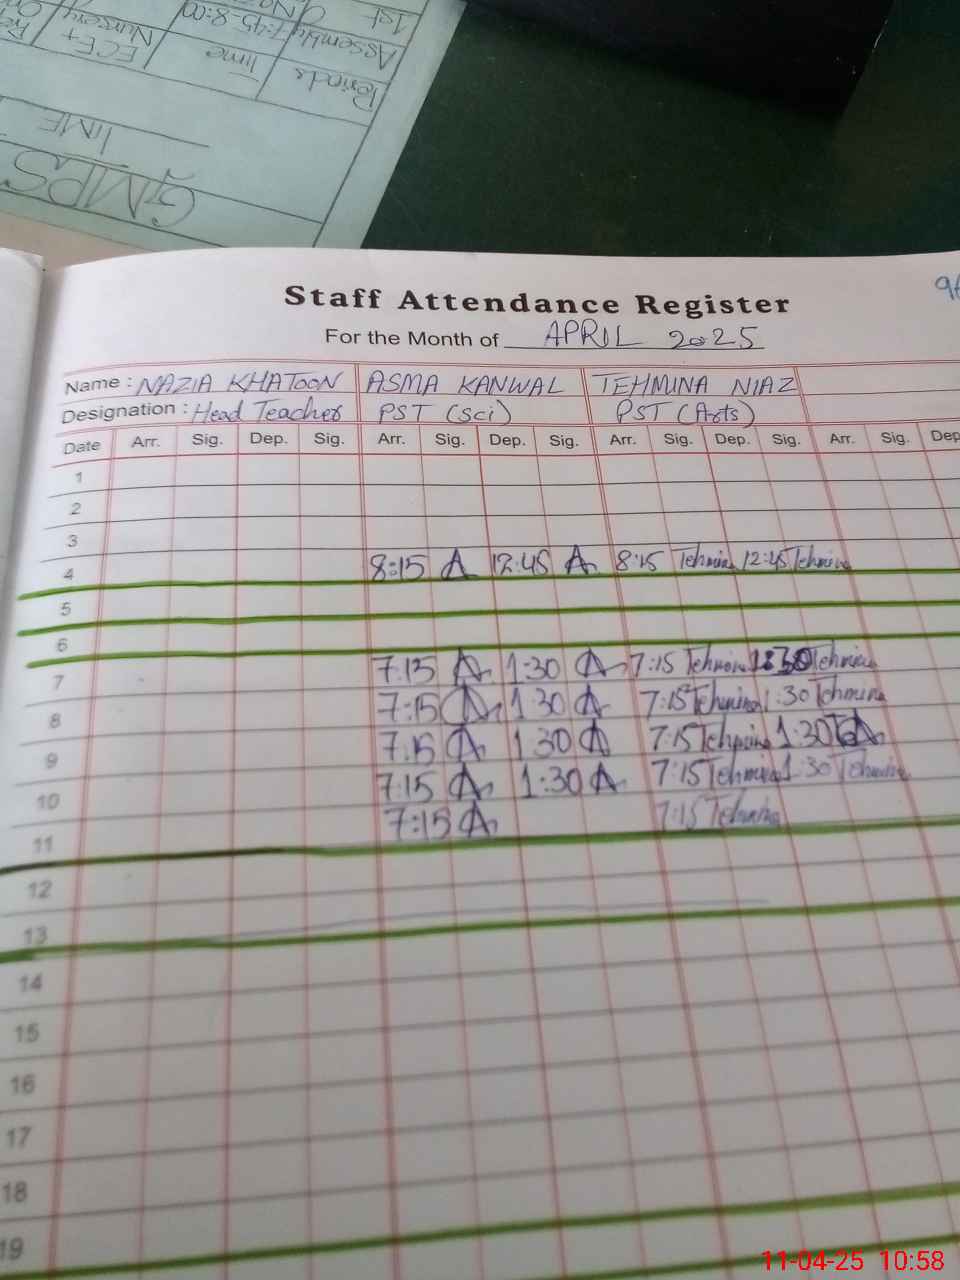 1st
Assembly 7:45-8:00
Nursery
ECE+
Time
Periods
TIME
GMPS
Staff Attendance Register
For the Month of APRIL 2025
Name : NAZIA KHATOON ASMA KANWAL TEHMINA NIAZ
Designation : Head Teacher PST (Sci) PST (Arts)
Date Arr. Sig. Dep. Sig. Arr. Sig. Dep. Sig. Arr. Sig. Dep. Sig. Arr. Sig. Dep
1
2
3
4 8:15 A 12:45 A 8:15 Tehmina 12:45 Tehmina
5
6
7 7:15 A 1:30 A 7:15 Tehmina 1:30 Tehmina
8 7:15 A 1:30 A 7:15 Tehmina 1:30 Tehmina
9 7:15 A 1:30 A 7:15 Tehmina 1:30
10 7:15 A 1:30 A 7:15 Tehmina 1:30 Tehmina
11 7:15 A 7:15 Tehmina
12
13
14
15
16
17
18
19
11-04-25 10:58